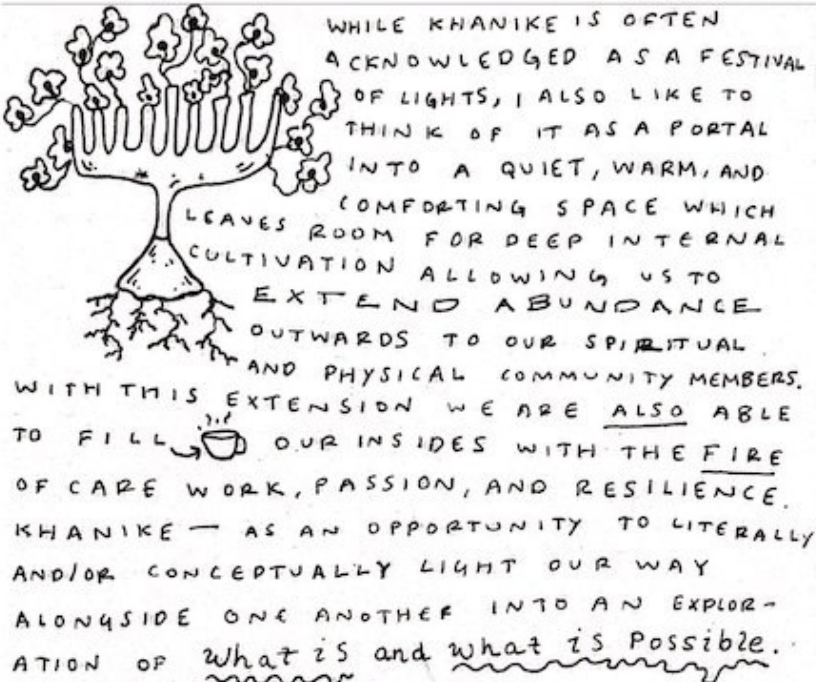 WHILE KHANIKE IS OFTEN
ACKNOWLEDGED AS A FESTIVAL
OF LIGHTS, I ALSO LIKE TO
THINK OF IT AS A PORTAL
INTO A QUIET, WARM, AND
COMFORTING SPACE WHICH
LEAVES ROOM FOR DEEP INTERNAL
CULTIVATION ALLOWING US TO
EXTEND ABUNDANCE
OUTWARDS TO OUR SPIRITUAL
AND PHYSICAL COMMUNITY MEMBERS.
WITH THIS EXTENSION WE ARE ALSO ABLE
TO FILL OUR INSIDES WITH THE FIRE
OF CARE WORK, PASSION, AND RESILIENCE.
KHANIKE — AS AN OPPORTUNITY TO LITERALLY
AND/OR CONCEPTUALLY LIGHT OUR WAY
ALONGSIDE ONE ANOTHER INTO AN EXPLOR-
ATION OF What is and what is Possible.